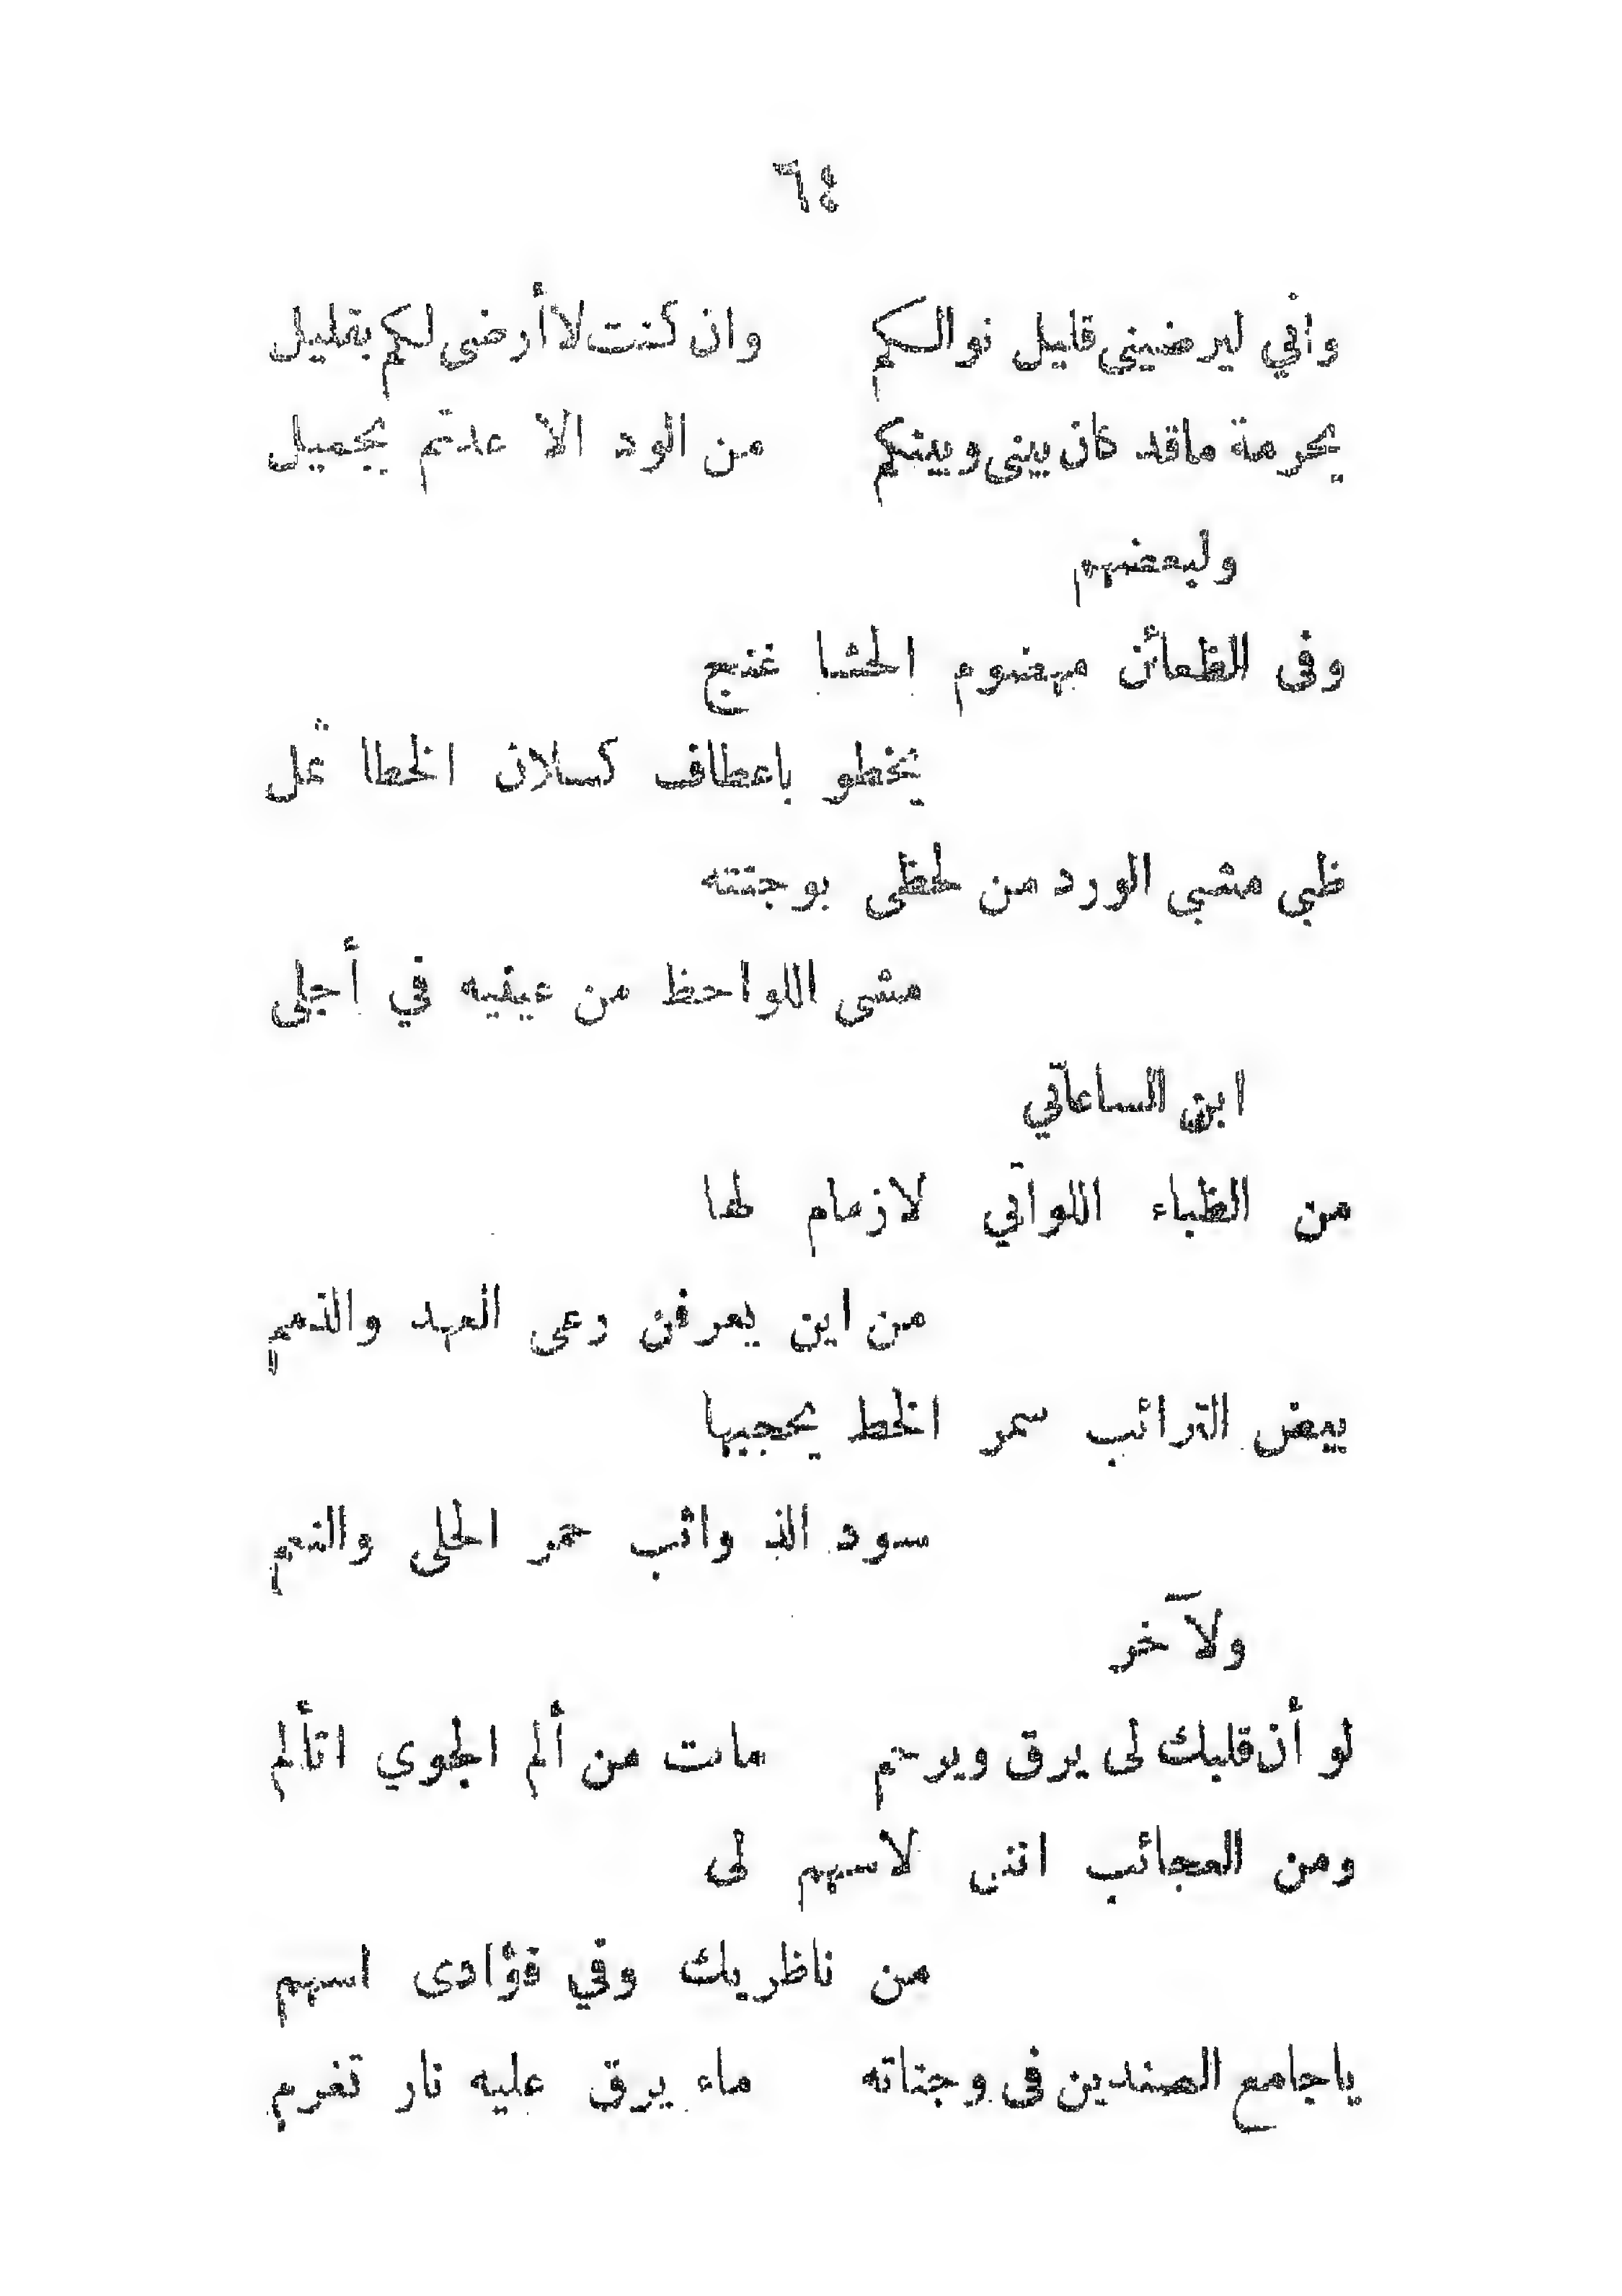 ٦٤
وأني ليرضيني قليل نوالكم وان كنت لا أرضى لكم بقليل
بحرمة ماقد كان بيني وبينكم من الود الا عدتم بجميل
ولبعضهم
وفى الظعائن مهضوم الحشا غنج
يخطو باعطاف كسلان الخطا ثمل
ظبي مشى الورد من لحظى بوجنته
مشى اللواحظ من عينيه في أجلى
ابن الساعاتي
من الظباء اللواتي لازمام لها
من اين يعرفن رعى العهد والذمم
بيض الترائب سمر الخط يحجبها
سود الذوائب حمر الحلى والنعم
ولآخر
لو أن قلبك لى يرق ويرحم مات من ألم الجوي اتألم
ومن العجائب اننى لاسهم لى
من ناظريك وفي فؤادى اسهم
ياجامع الضدين فى وجناته ماء يرق عليه نار تضرم